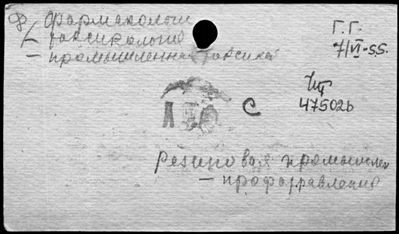 Ф/ Фармакология
токсикология
— промышленная токсикол
Г.Г.
7/VI-55.
475026
С
Резиновая промышлен
— профотравления